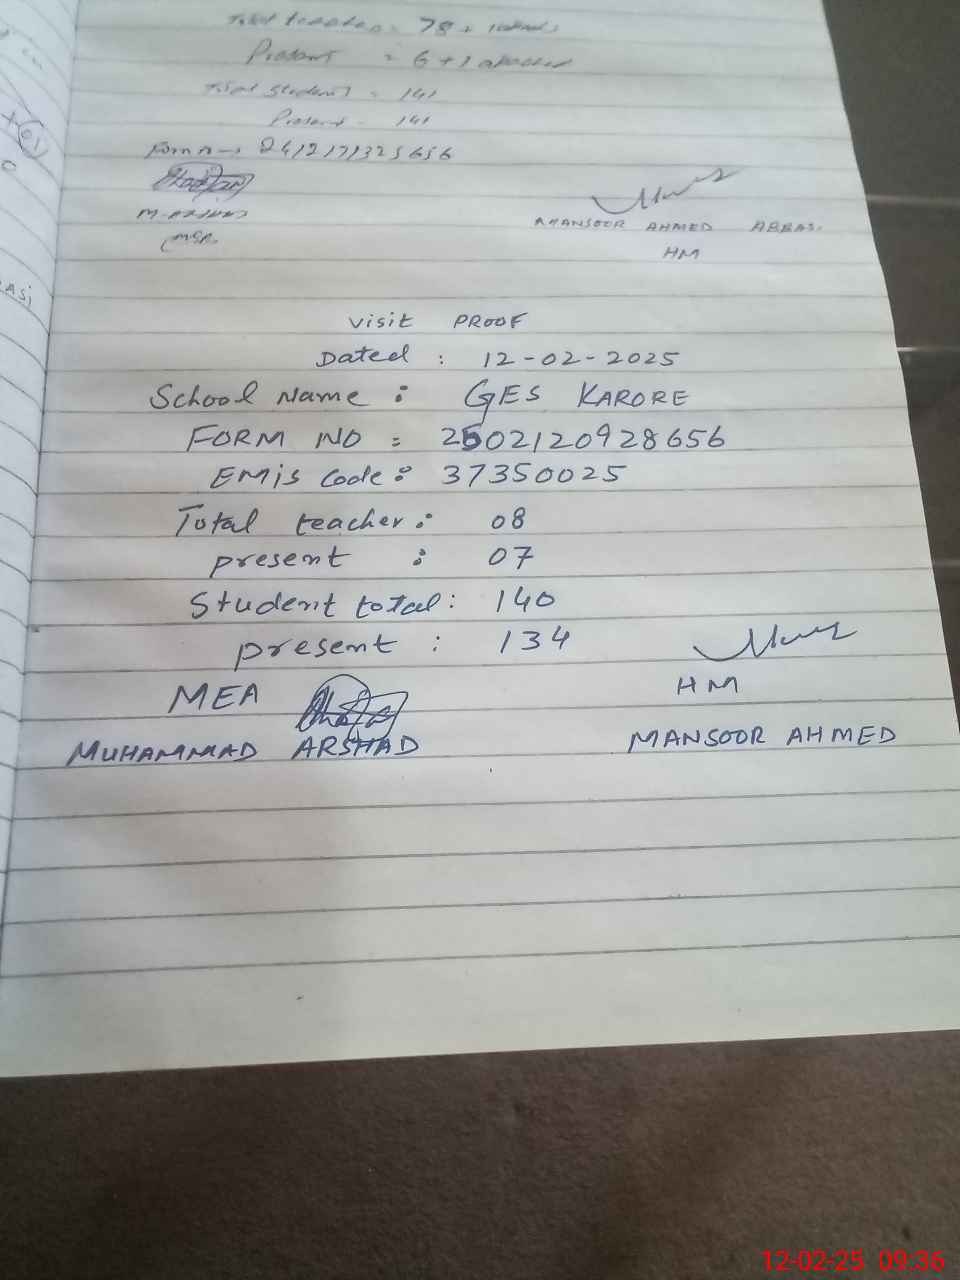 Total = 78 +
Present = 6 + 1 attached
Total Students = 141
Present - 141
Form n → 2412171325656
M. ARSHAD
MANSOOR AHMED ABBASI
HM
+ 01
ASI
Visit PROOF
Dated : 12-02-2025
School Name : GES KARORE
FORM NO = 2502120928656
EMIS Code : 37350025
Total teacher : 08
present : 07
Student total : 140
present : 134
MEA HM
MUHAMMAD ARSHAD MANSOOR AHMED
12-02-25 09:36